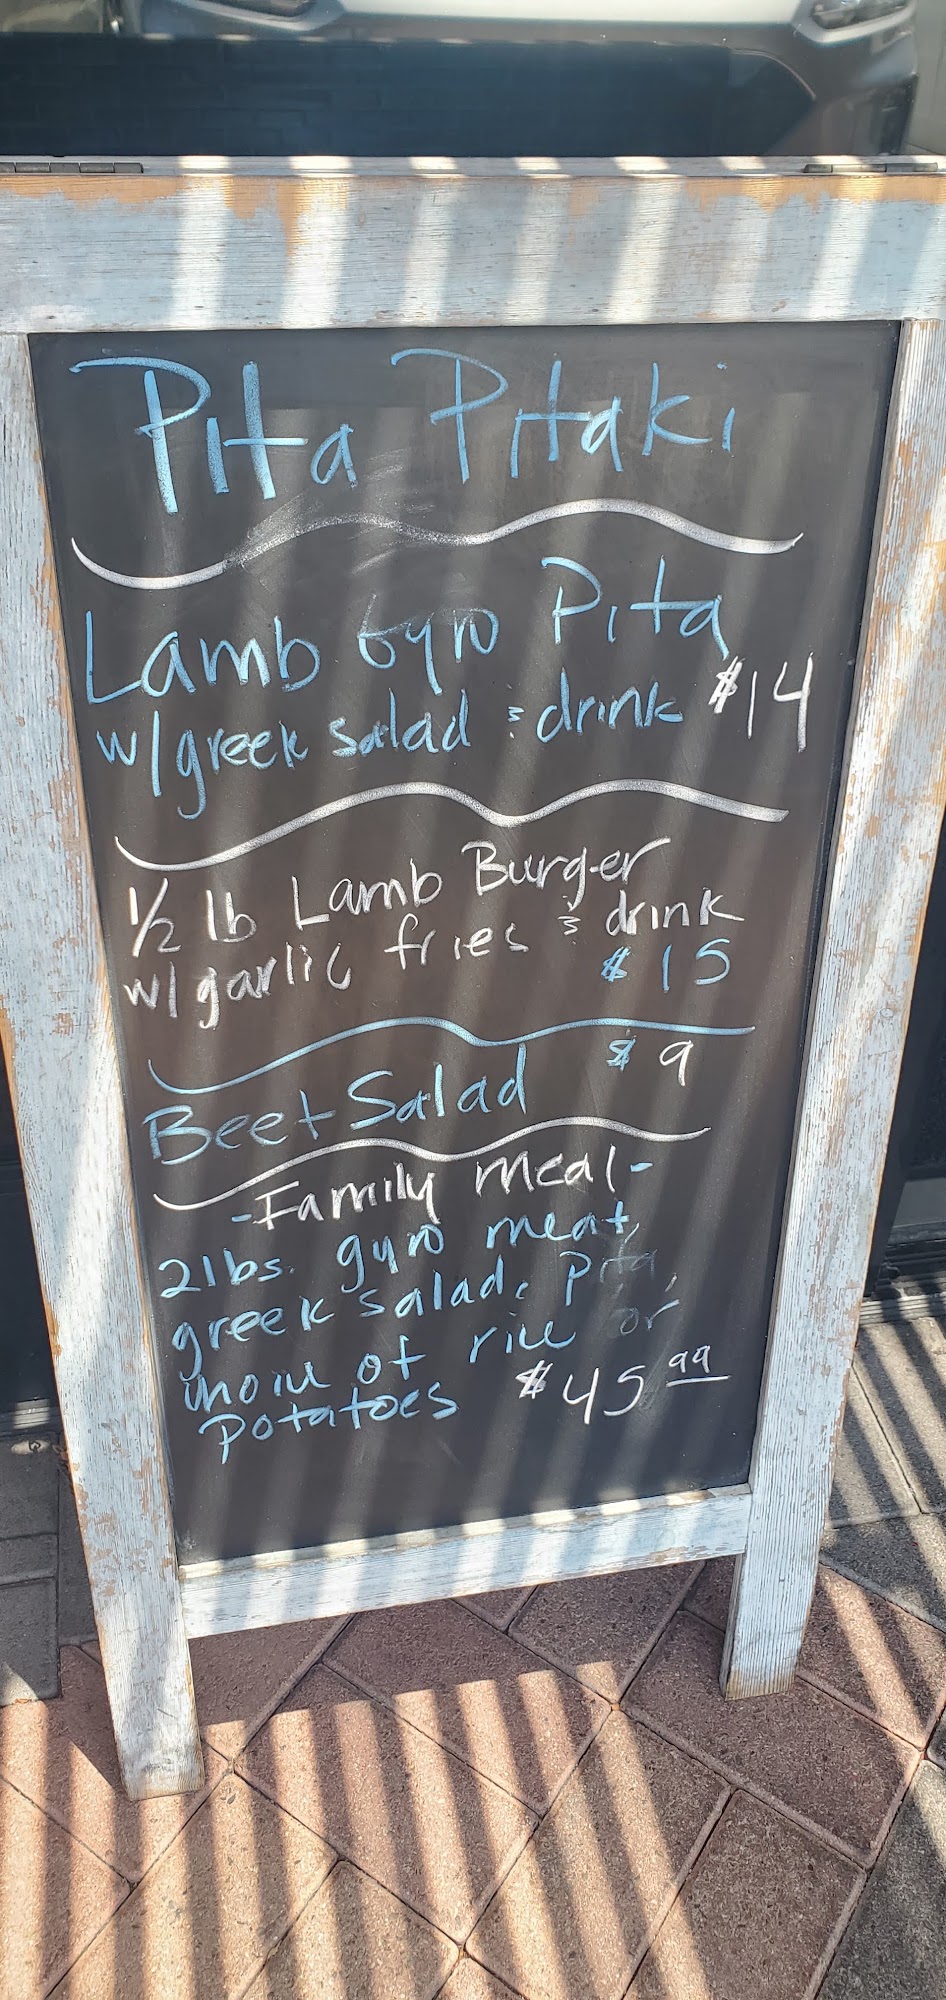 Pita Pitaki
Lamb Gyro Pita
w/greek salad & drink $14
1/2 lb Lamb Burger
w/garlic fries & drink
$15
$9
Beet Salad
-Family Meal-
2lbs. gyro meat,
greek salad, Pita,
choice of rice or
Potatoes $45.99